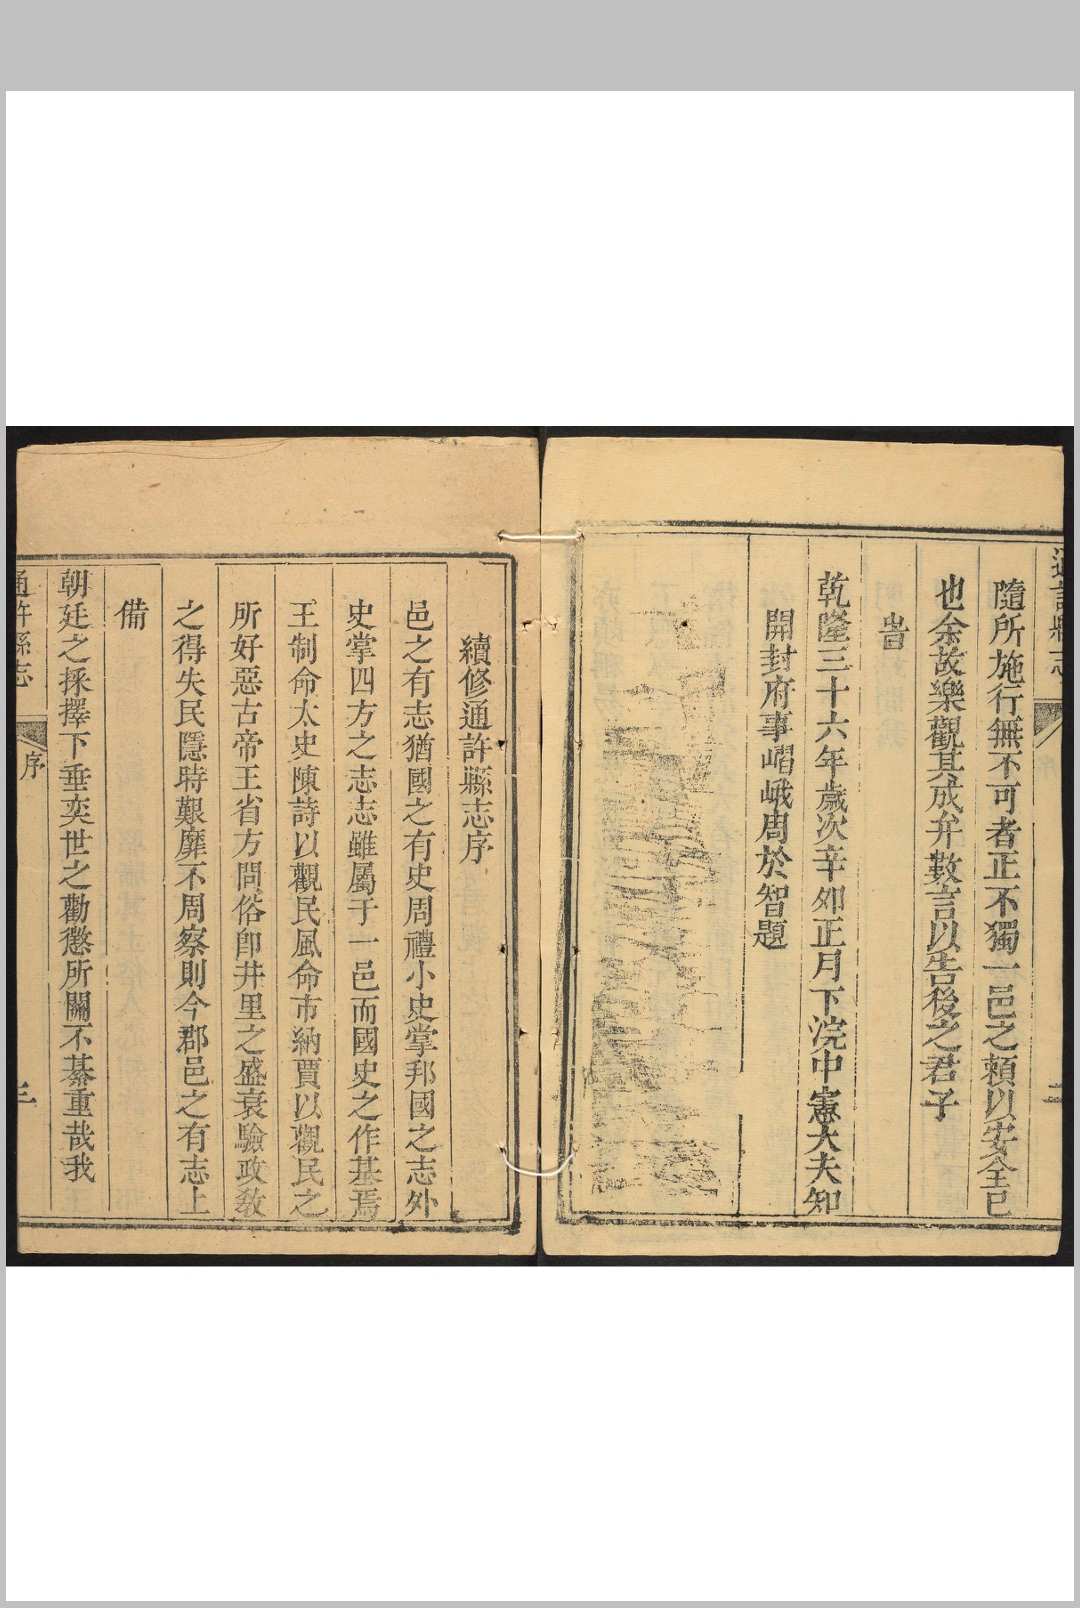 隨所施行無不可者正不獨一邑之賴以安全已
也余故樂觀其成弁數言以告後之君子
旹
乾隆三十六年歲次辛卯正月下浣中憲大夫知
開封府事嶍峨周於智題
續修通許縣志序
邑之有志猶國之有史周禮小史掌邦國之志外
史掌四方之志志雖屬于一邑而國史之作基焉
王制命太史陳詩以觀民風命市納賈以觀民之
所好惡古帝王省方問俗卽井里之盛衰驗政教
之得失民隱時艱靡不周察則今郡邑之有志上
備
朝廷之採擇下垂奕世之勸懲所關不綦重哉我
通許縣志
序
三